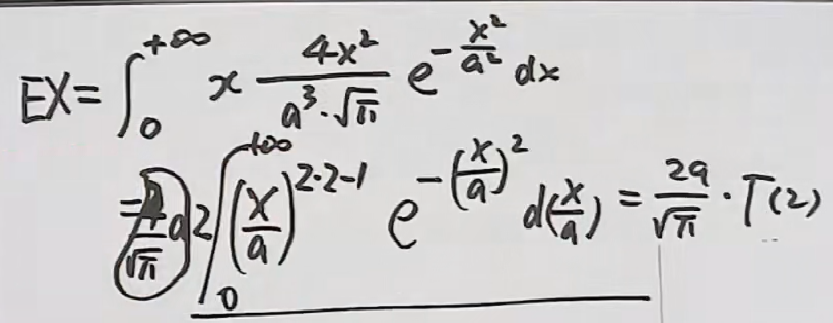 EX = ∫₀^{+∞} x \frac{4x²}{a³·√π} e^{-\frac{x²}{a²}} dx
= \frac{2}{√π} a 2 ∫₀^{+∞} (\frac{x}{a})^{2·2-1} e^{-(\frac{x}{a})²} d(\frac{x}{a}) = \frac{2a}{√π} · Γ(2)